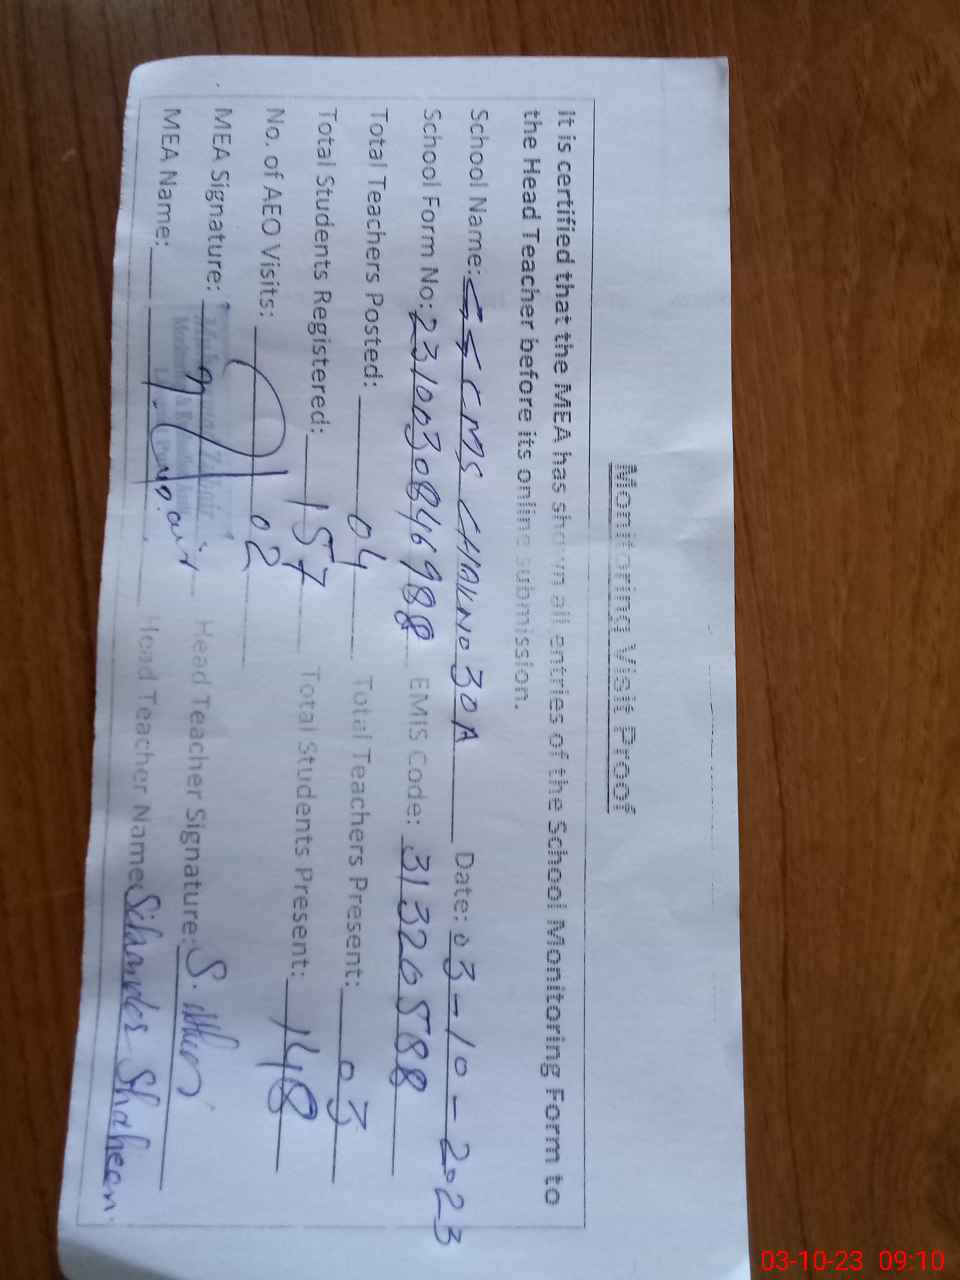 Monitoring Visit Proof
It is certified that the MEA has shown all entries of the School Monitoring Form to
the Head Teacher before its online submission.
School Name: GGCMS CHAK NO 30 A Date: 03-10-2023
School Form No: 2310030846988 EMIS Code: 31320588
Total Teachers Posted: 04 Total Teachers Present: 03
Total Students Registered: 157 Total Students Present: 148
No. of AEO Visits: 02
MEA Signature: Head Teacher Signature:
MEA Name: Head Teacher Name: Shaheen
03-10-23 09:10